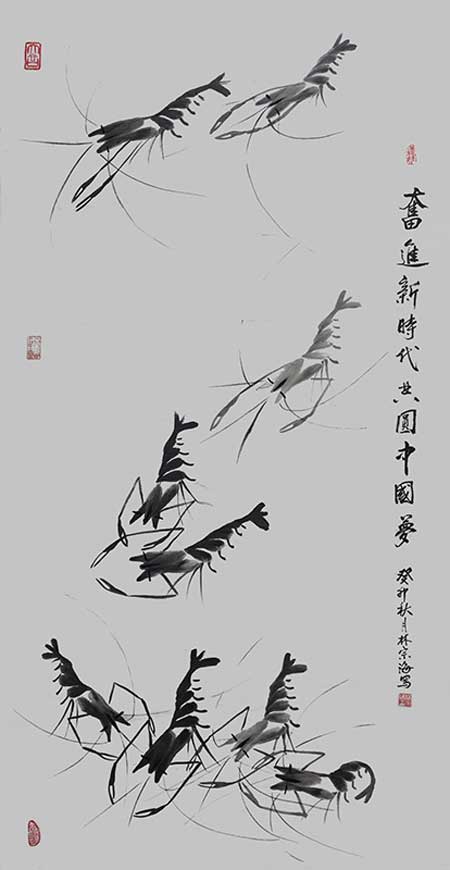 奮進新時代共圓中國夢
癸卯秋月林宗海寫